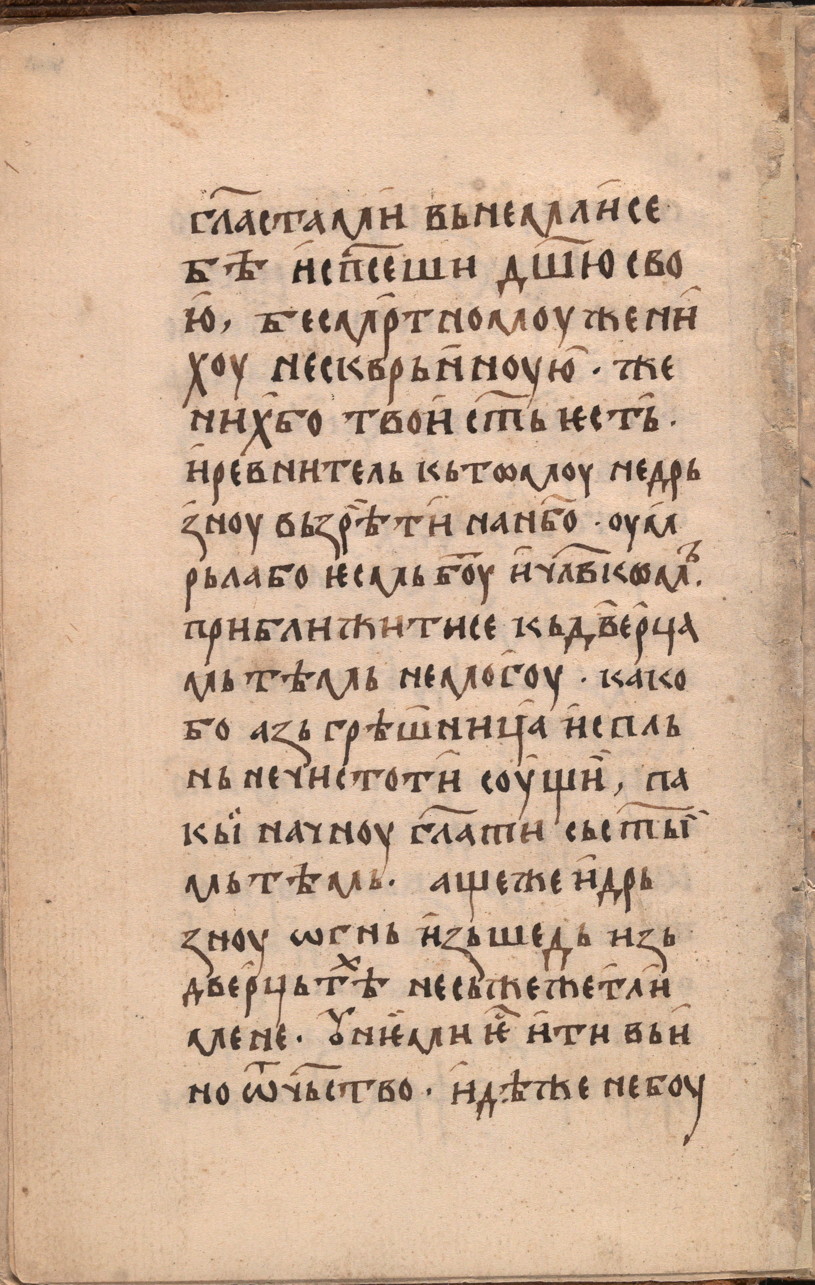 гл҃астамлїи вьнемлїи се
бѣ и҆сп҃сеши дш҃ю сво
ю̀, бесмр҃тномоу жени
хоу нескврьнноую̀ · же
них бо твои ст҃ь ѥсть ·
и҆ ревнитель кь томоу не дрь
зноу вьзрѣти на нб҃о · оум
рьла бо ѥсмь бо҃у и҆ чл҃вкѡмъ ·
приближити се кь дверца
мь тѣмь не могоу · како
бо азь грѣшница и҆спль
нь нечистоти соущи, па
кы начноу гл҃ати сь ст҃ыи
мь тѣмь · аще же и҆ дрь
зноу ѡгнь и҆зьшедь изь
дверць тѣх не сьжежет ли
мене · Ꙋ҆нѥ ми ѥ҆ ити вь и҆
но ѿчьство · и҆дѣже не боу